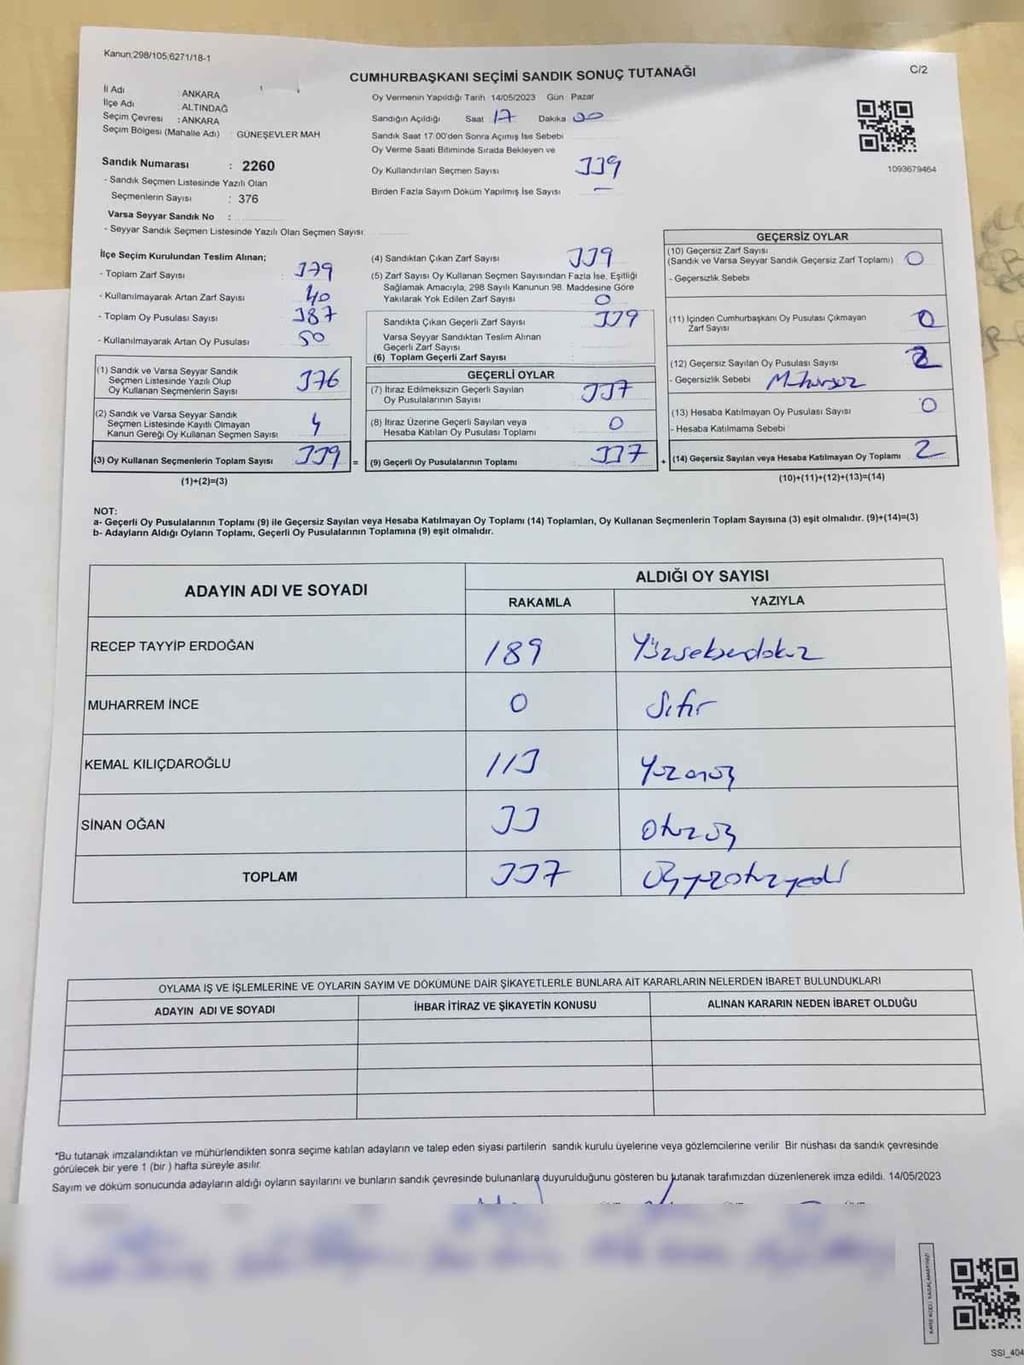 Kanun;298/105;6271/18-1
C/2
CUMHURBAŞKANI SEÇİMİ SANDIK SONUÇ TUTANAĞI
İl Adı : ANKARA
İlçe Adı : ALTINDAĞ
Seçim Çevresi : ANKARA
Seçim Bölgesi (Mahalle Adı) : GÜNEŞEVLER MAH
Sandık Numarası : 2260
- Sandık Seçmen Listesinde Yazılı Olan
Seçmenlerin Sayısı : 376
Varsa Seyyar Sandık No :
- Seyyar Sandık Seçmen Listesinde Yazılı Olan Seçmen Sayısı:
Oy Vermenin Yapıldığı Tarih 14/05/2023 Gün Pazar
Sandığın Açıldığı Saat 17 Dakika 00
Sandık Saat 17:00'den Sonra Açımış İse Sebebi
Oy Verme Saati Bitiminde Sırada Bekleyen ve
Oy Kullandırılan Seçmen Sayısı 339
Birden Fazla Sayım Döküm Yapılmış İse Sayısı —
1093679464
İlçe Seçim Kurulundan Teslim Alınan;
- Toplam Zarf Sayısı 379
- Kullanılmayarak Artan Zarf Sayısı 40
- Toplam Oy Pusulası Sayısı 387
- Kullanılmayarak Artan Oy Pusulası 50
(1) Sandık ve Varsa Seyyar Sandık
Seçmen Listesinde Yazılı Olup
Oy Kullanan Seçmenlerin Sayısı 376
(2) Sandık ve Varsa Seyyar Sandık
Seçmen Listesinde Kayıtlı Olmayan
Kanun Gereği Oy Kullanan Seçmen Sayısı 4
(3) Oy Kullanan Seçmenlerin Toplam Sayısı 339 =
(1)+(2)=(3)
(4) Sandıktan Çıkan Zarf Sayısı 339
(5) Zarf Sayısı Oy Kullanan Seçmen Sayısından Fazla İse, Eşitliği
Sağlamak Amacıyla, 298 Sayılı Kanunun 98. Maddesine Göre
Yakılarak Yok Edilen Zarf Sayısı 0
Sandıkta Çıkan Geçerli Zarf Sayısı 339
Varsa Seyyar Sandıktan Teslim Alınan
Geçerli Zarf Sayısı
(6) Toplam Geçerli Zarf Sayısı :
GEÇERLİ OYLAR
(7) İtiraz Edilmeksizin Geçerli Sayılan
Oy Pusulalarının Sayısı 337
(8) İtiraz Üzerine Geçerli Sayılan veya
Hesaba Katılan Oy Pusulası Toplamı 0
(9) Geçerli Oy Pusulalarının Toplamı 337 +
GEÇERSİZ OYLAR
(10) Geçersiz Zarf Sayısı
(Sandık ve Varsa Seyyar Sandık Geçersiz Zarf Toplamı) 0
- Geçersizlik Sebebi
(11) İçinden Cumhurbaşkanı Oy Pusulası Çıkmayan
Zarf Sayısı 0
(12) Geçersiz Sayılan Oy Pusulası Sayısı 2
- Geçersizlik Sebebi Mühürsüz
(13) Hesaba Katılmayan Oy Pusulası Sayısı 0
- Hesaba Katılmama Sebebi
(14) Geçersiz Sayılan veya Hesaba Katılmayan Oy Toplamı 2
(10)+(11)+(12)+(13)=(14)
NOT:
a- Geçerli Oy Pusulalarının Toplamı (9) ile Geçersiz Sayılan veya Hesaba Katılmayan Oy Toplamı (14) Toplamları, Oy Kullanan Seçmenlerin Toplam Sayısına (3) eşit olmalıdır. (9)+(14)=(3)
b- Adayların Aldığı Oyların Toplamı, Geçerli Oy Pusulalarının Toplamına (9) eşit olmalıdır.
ADAYIN ADI VE SOYADI
ALDIĞI OY SAYISI
RAKAMLA YAZIYLA
RECEP TAYYİP ERDOĞAN 189 Yüzseksendokuz
MUHARREM İNCE 0 Sıfır
KEMAL KILIÇDAROĞLU 113 Yüzonüç
SİNAN OĞAN 33 Otuzüç
TOPLAM 337 Üçyüzotuzyedi
OYLAMA İŞ VE İŞLEMLERİNE VE OYLARIN SAYIM VE DÖKÜMÜNE DAİR ŞİKAYETLERLE BUNLARA AİT KARARLARIN NELERDEN İBARET BULUNDUKLARI
ADAYIN ADI VE SOYADI İHBAR İTİRAZ VE ŞİKAYETİN KONUSU ALINAN KARARIN NEDEN İBARET OLDUĞU
*Bu tutanak imzalandıktan ve mühürlendikten sonra seçime katılan adayların ve talep eden siyasi partilerin sandık kurulu üyelerine veya gözlemcilerine verilir. Bir nüshası da sandık çevresinde
görülecek bir yere 1 (bir ) hafta süreyle asılır.
Sayım ve döküm sonucunda adayların aldığı oyların sayılarını ve bunların sandık çevresinde bulunanlara duyurulduğunu gösteren bu tutanak tarafımızdan düzenlenerek imza edildi. 14/05/2023
SSI_404